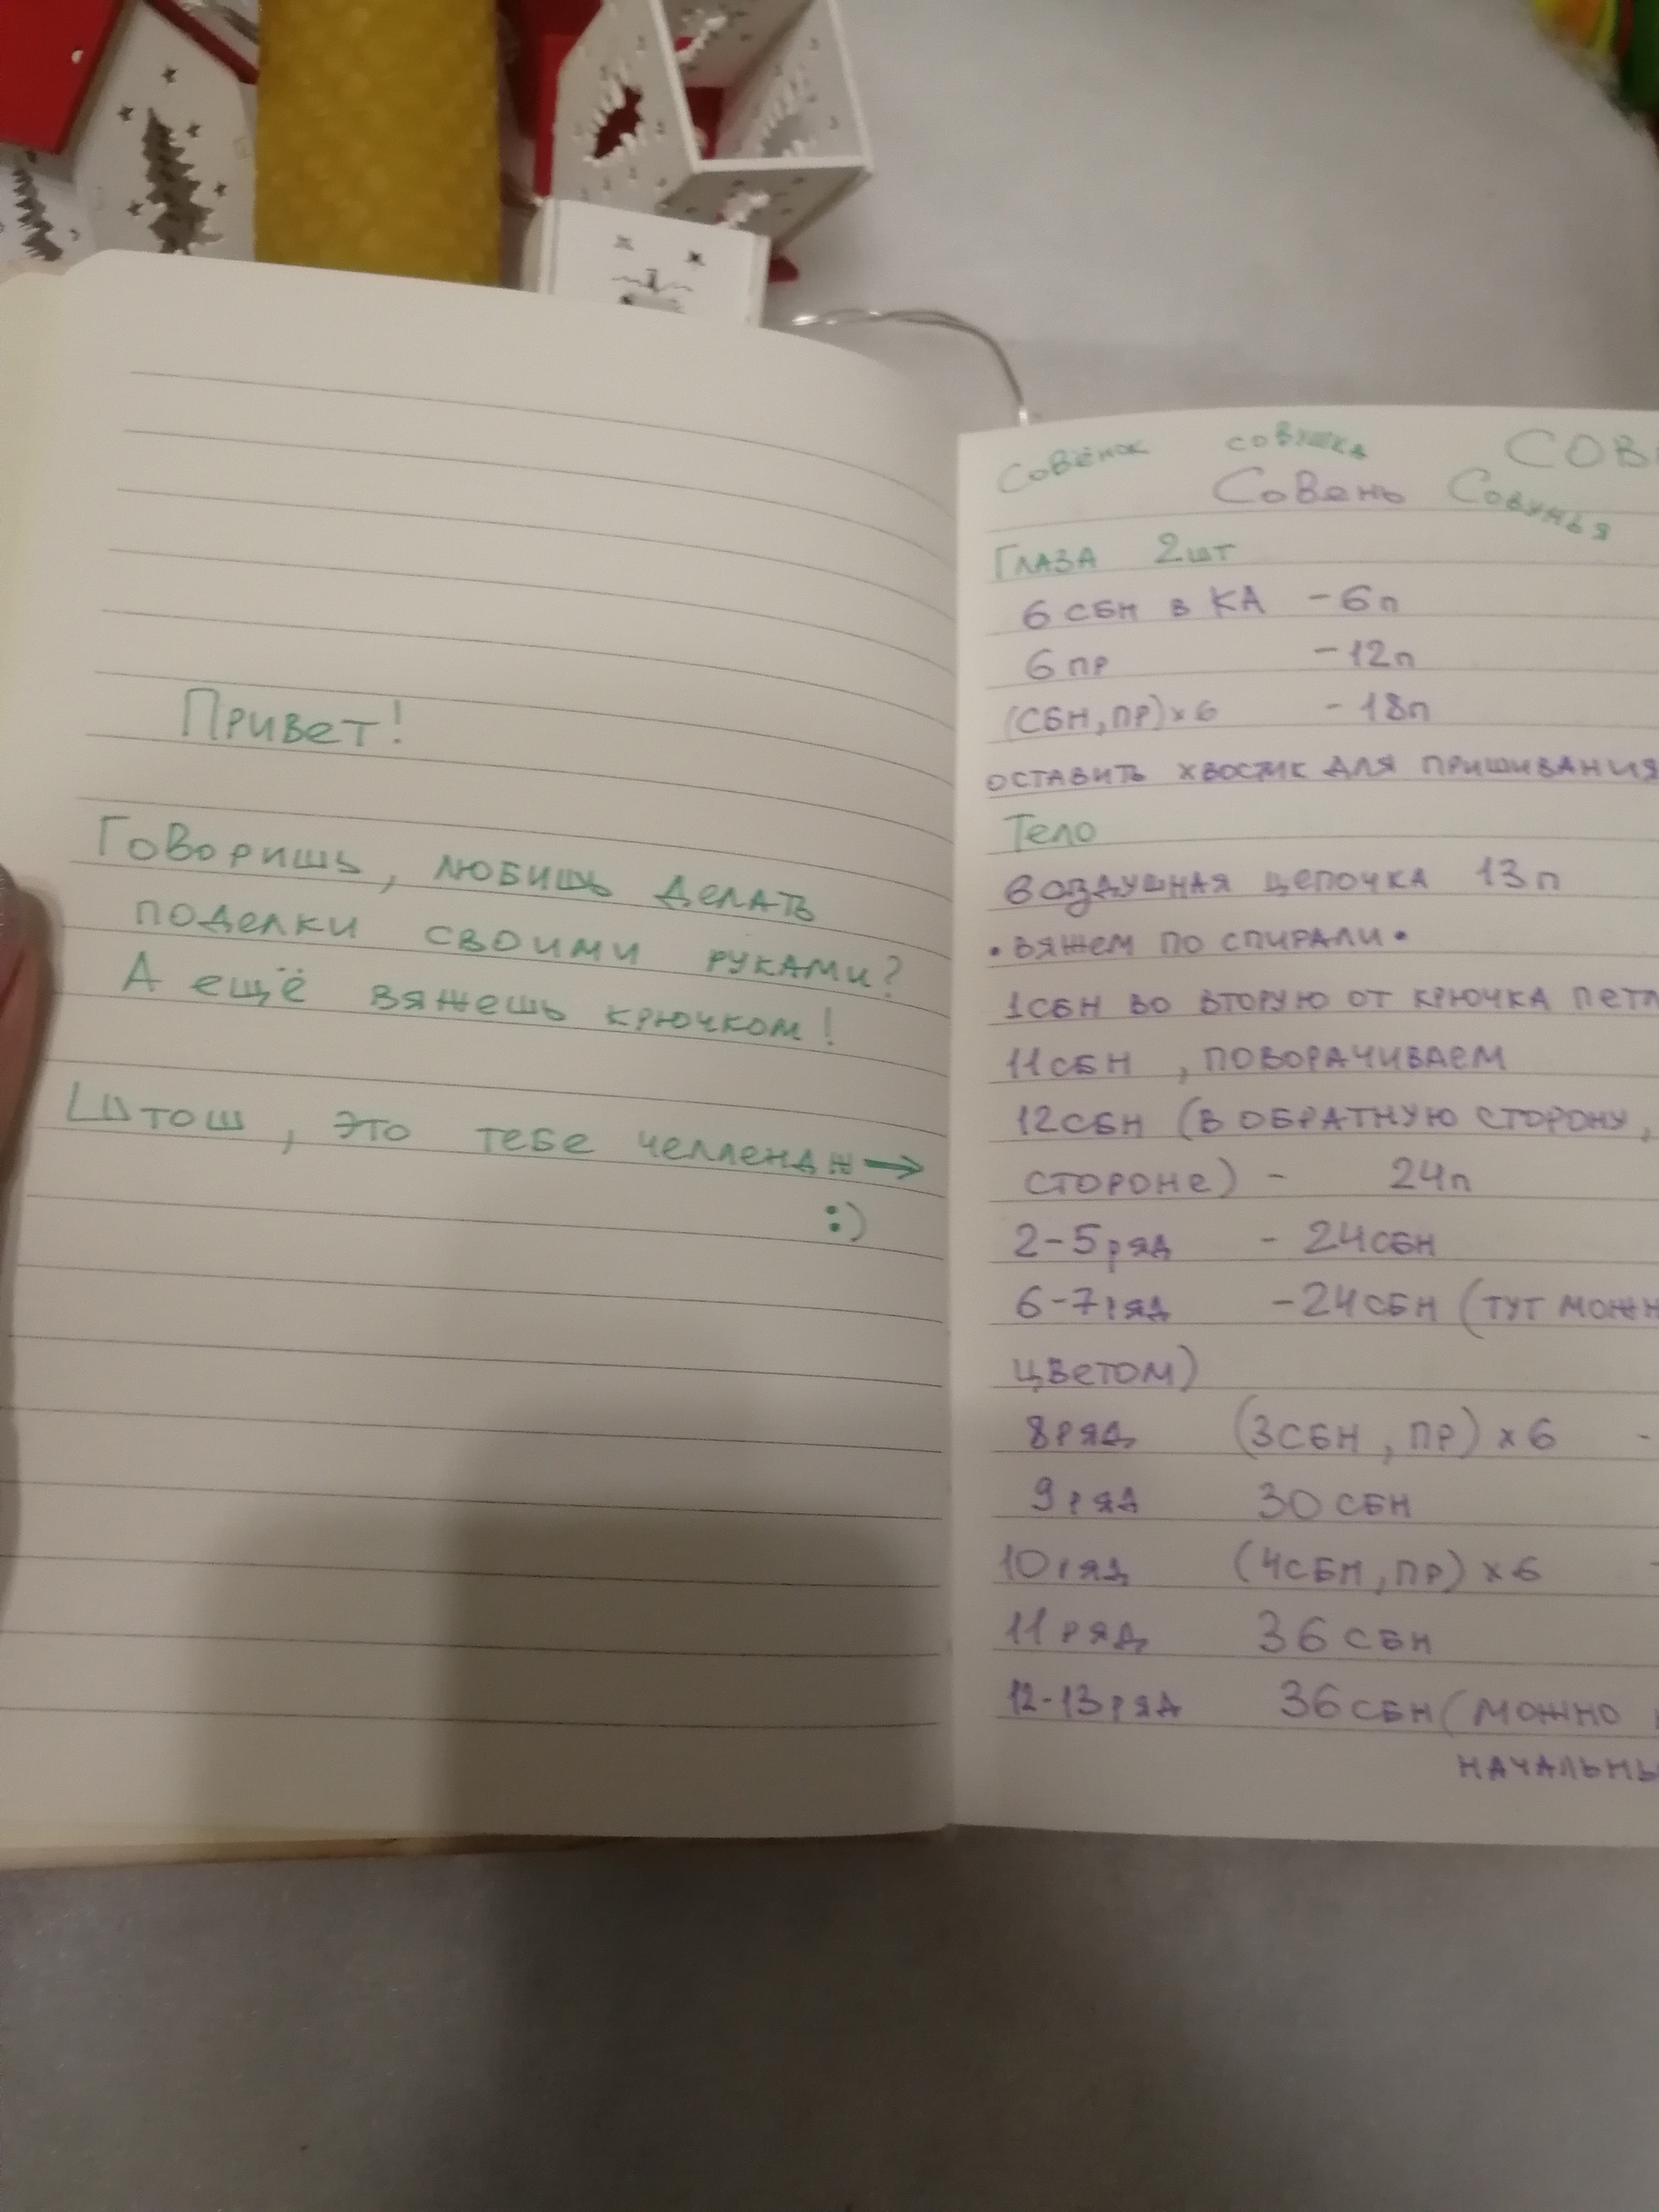 Привет!
Говоришь, любишь делать
поделки своими руками?
А ещё вяжешь крючком!
Штош, это тебе челлендж →
:)
Совёнок совушка СОВ
Совень Совунья
Глаза 2шт
6 сбн в КА - 6п
6 пр - 12п
(сбн, пр) х 6 - 18п
оставить хвостик для пришивания
Тело
воздушная цепочка 13п
• вяжем по спирали •
1сбн во вторую от крючка петл
11сбн , поворачиваем
12сбн (в обратную сторону,
стороне) - 24п
2-5ряд - 24сбн
6-7ряд - 24сбн (тут можн
цветом)
8ряд (3сбн, пр) х 6 -
9ряд 30сбн
10ряд (4сбн, пр) х 6 -
11ряд 36сбн
12-13ряд 36сбн (можно
начальны